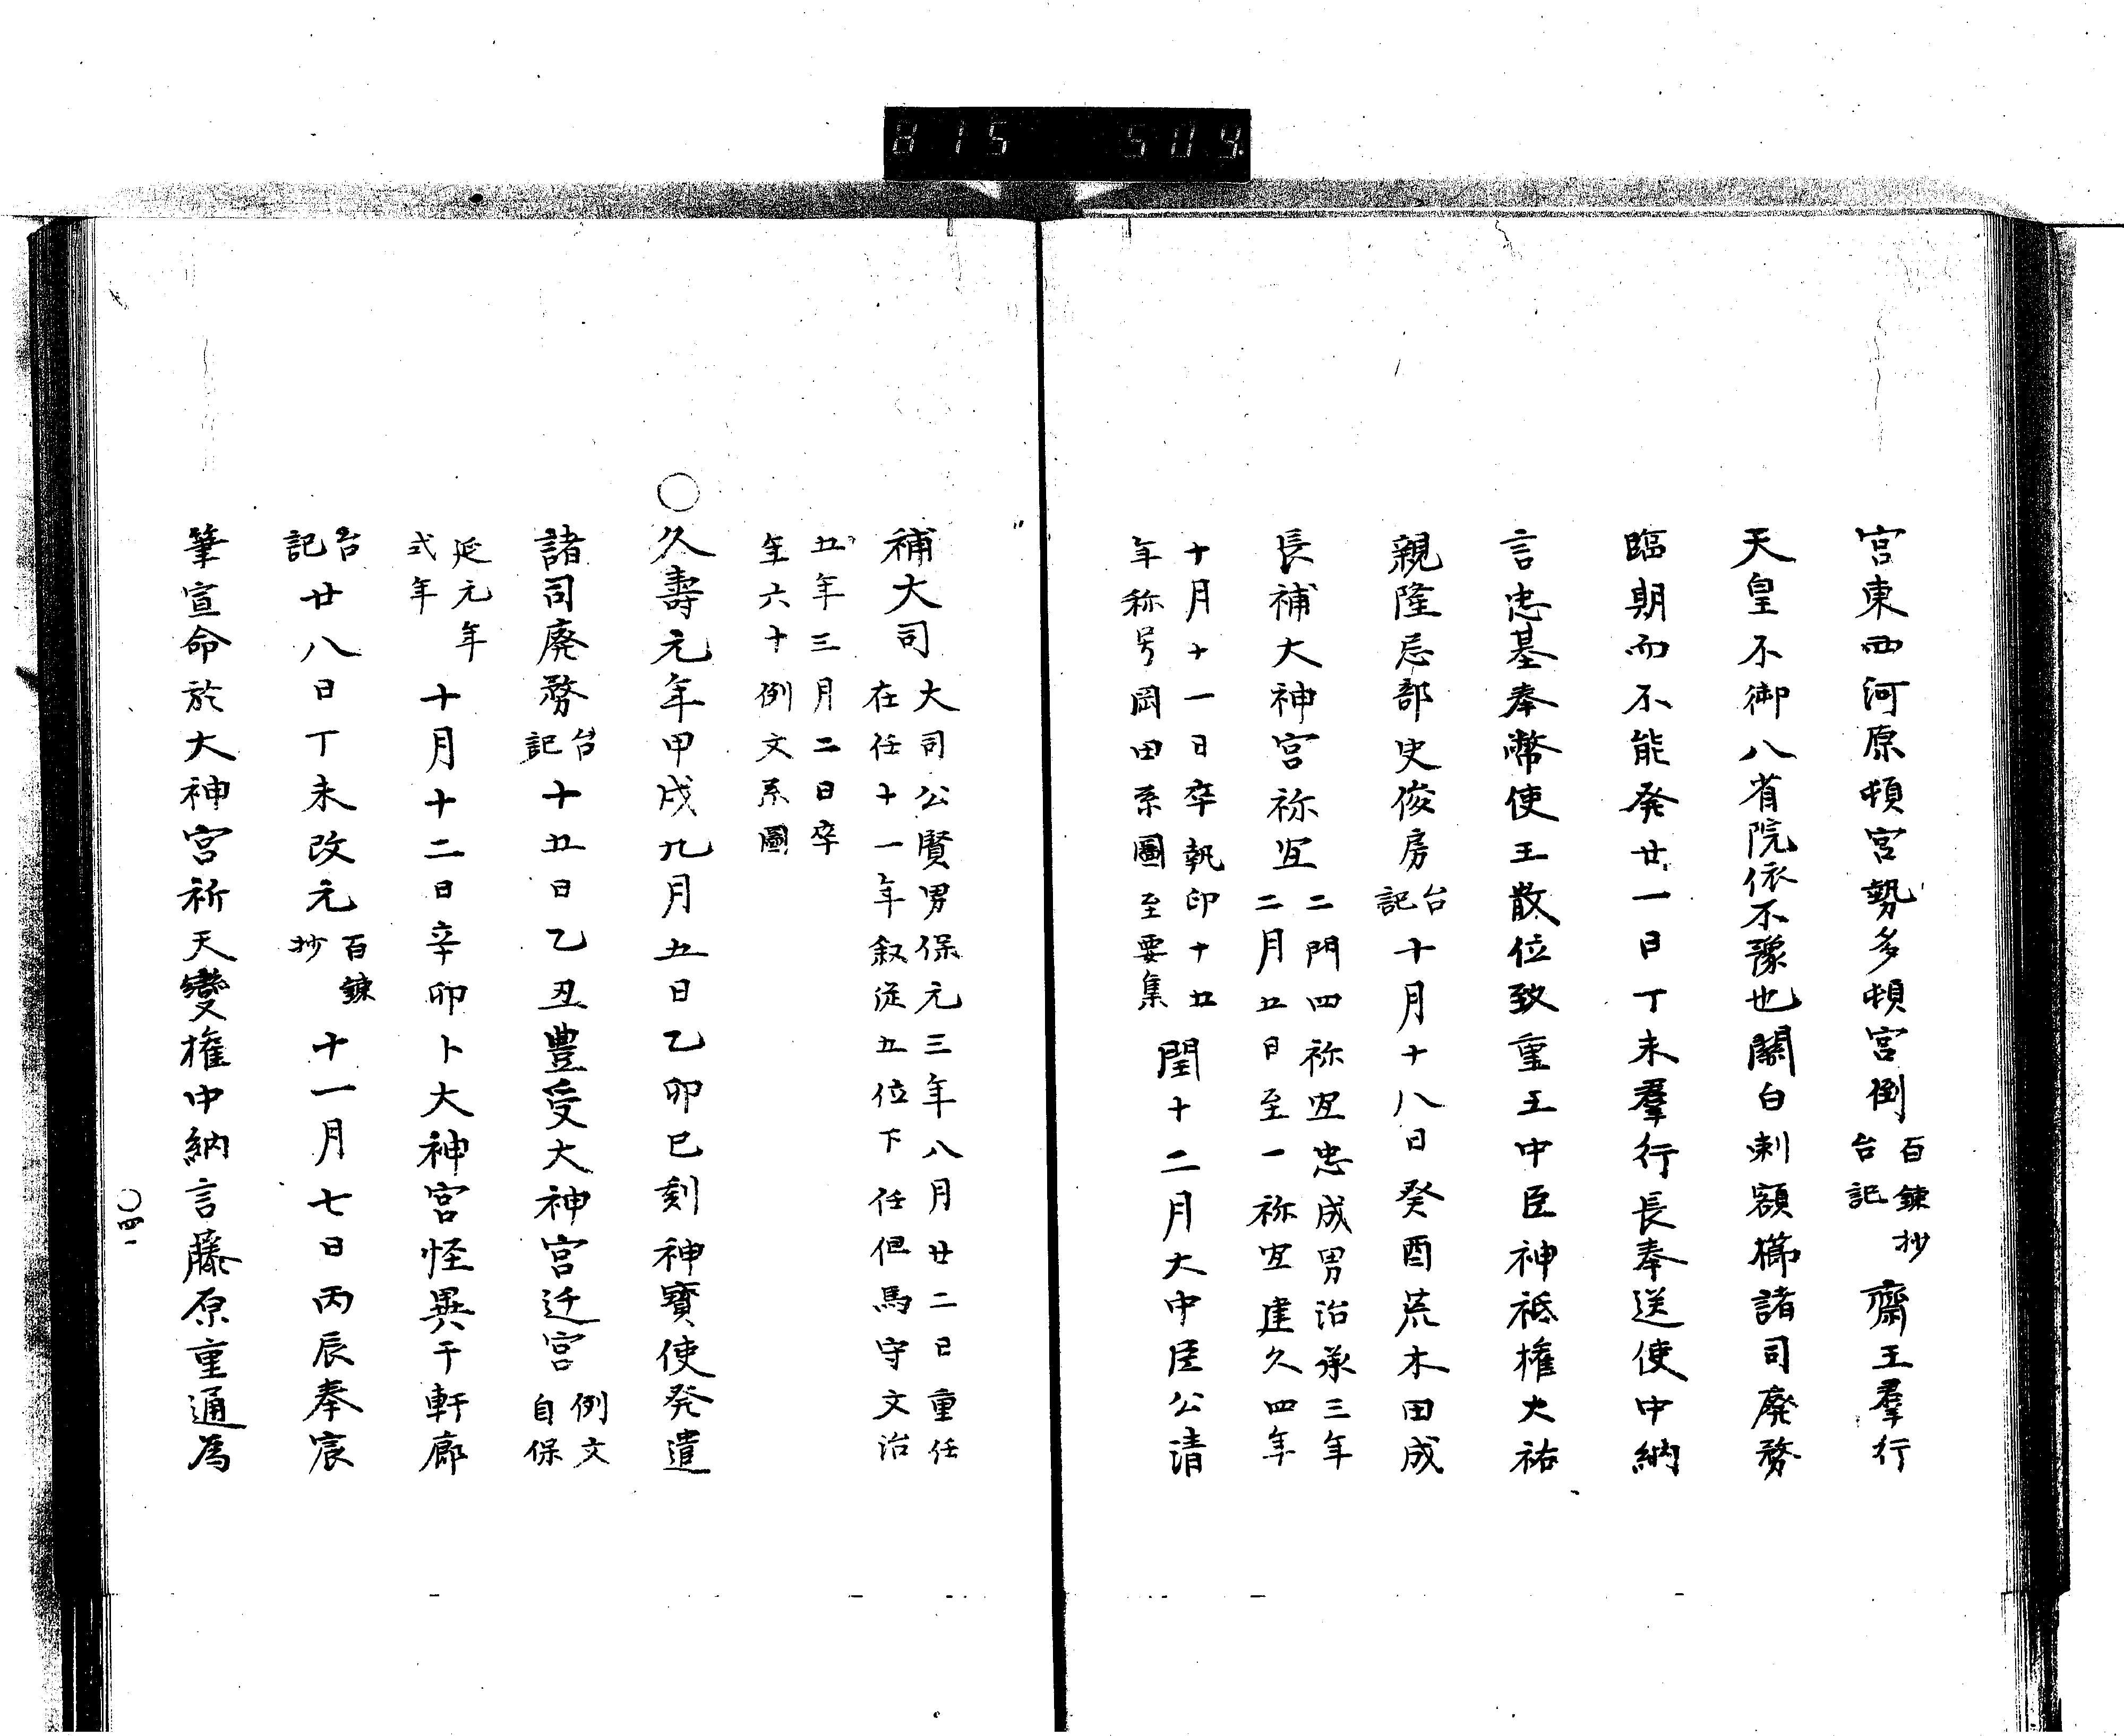 815 504
宮東西河原頓宮勢多頓宮倒百錬抄台記齋王羣行
天皇不御八省院依不豫也關白刺額櫛諸司廃務
臨期而不能発廿一日丁未羣行長奉送使中納
言忠基奉幣使王散位致重王中臣神祗権大祐
親隆忌部史俊房台記十月十八日癸酉荒木田成
長補大神宮祢宜二門四祢宜忠成男治承三年
二月五日至一祢宜建久四年
十月十一日卒執印十五
年称号岡田系圖至要集閏十二月大中臣公清
補大司大司公賢男保元三年八月廿二日重任
在任十一年叙従五位下任但馬守文治
五年三月二日卒
年六十例文系圖
○久壽元年甲戌九月五日乙卯巳刻神寶使発遣
諸司廃務台記十五日乙丑豊受大神宮迁宮例文自保
延元年
弐年十月十二日辛卯卜大神宮怪異于軒廊
台記廿八日丁未改元百錬抄十一月七日丙辰奉宸
筆宣命於大神宮祈天變権中納言藤原重通為
○四一